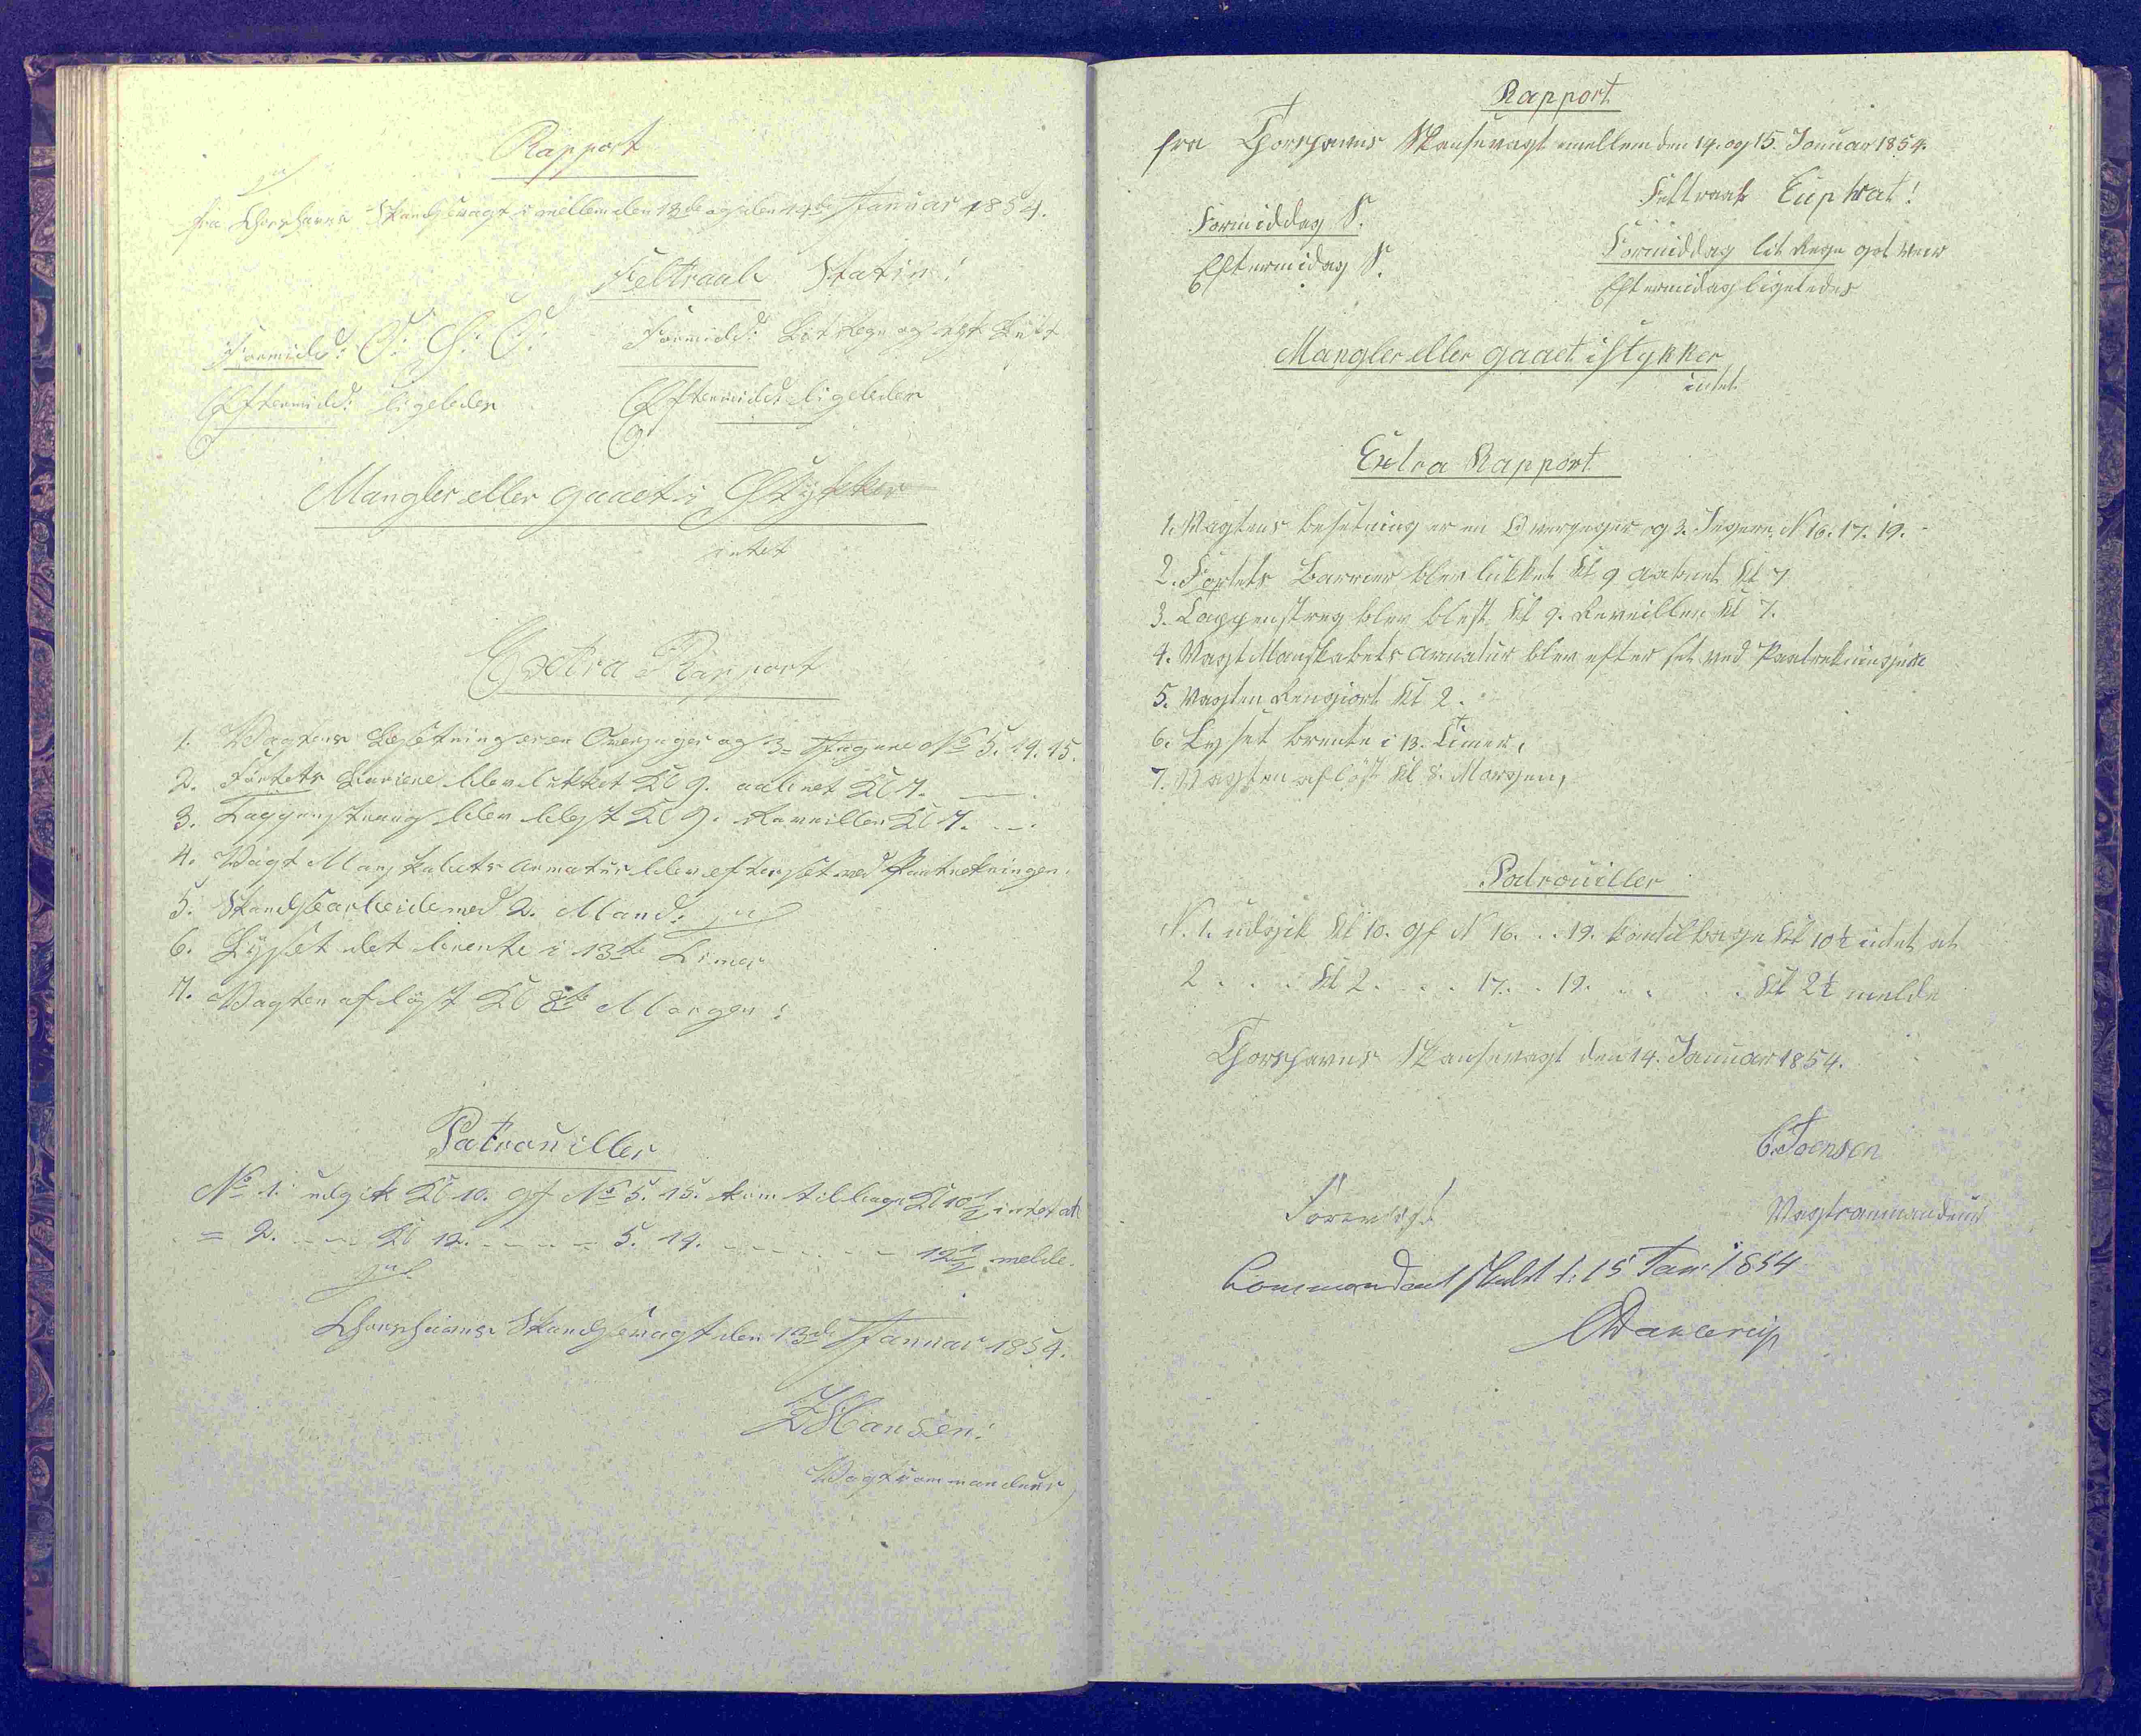 Rapport
fra Thorshavns Skandsevagt imellem den 13de og den 14de Januar 1854.
Feltraab Statin!
Formidd: S: S: O:
Formidd: Lit Regn og
Eftermidd: ligeledes
Eftermidd: ligeledes
Mangler eller gaaet i Stykker
intet
Extra Rapport
1. Vagtens Besetning er en Overjæger og 3 Jægere No 5. 14. 15.
2. Fortets Bariere blev lukket Kl 9. aabnet Kl 7.
3. Tappenstreeg blev blæst Kl 9. Reveillen Kl 7.
4. Vagt Mandskabets Armatur blev efterset ved Paatrekningen.
5. Skandsearbeide med 2. Mand.
6. Lyset det brente i 13te Timer
7. Vagten afløst Kl 8te Morgen:
Patrouiller
No 1. udgik Kl 10. gf No 5. 15. kom tilbage Kl 10 1/2 intet at
= 2. - - - Kl 12. - - - - 5. 14. - - - - - - - 12 1/2 melde.
Thorshavns Skandsevagt den 13de Januar 1854.
Hansen:
Vagtcommandeur
Rapport
fra Thorshavns Skansevagt emellem den 14. og 15. Januar 1854.
Feltraab Euphrat!
Formiddag S.
Formiddag lit Regn got veir
Eftermidag S.
Eftermidag ligeledes
Mangler eller gaaet i stykker
intet.
Extra Rapport
1. Vagtens besetning er en Overjeger og 3. Jegere, N 16. 17. 19.
2. Fortets Barrier blev lukket Kl 9 aabnet Kl 7
3. Tappenstreg blev blest Kl 9. Reveillen Kl 7.
4. Vagt Manskabets armatur blev efter set ved Paatrekningen
5. Vagten Rengiort Kl 2.
6. Lyset brente i 13. Timer,
7. Vagten afløst Kl 8. Morgen,
Patrouiller
N. 1. udgik Kl 10. gf N 16. . . 19. kom tilbage Kl 10 1/2 intet at
2 . . . Kl 2. . . . 17. . . 19. . . . . Kl 2 1/2 melde
Thorshavns Skansevagt den 14. Januar 1854.
C. Joensen
Vagtcommandeur
Forevist
Commandantskabet d: 15 Jan: 1854
CDahlerup